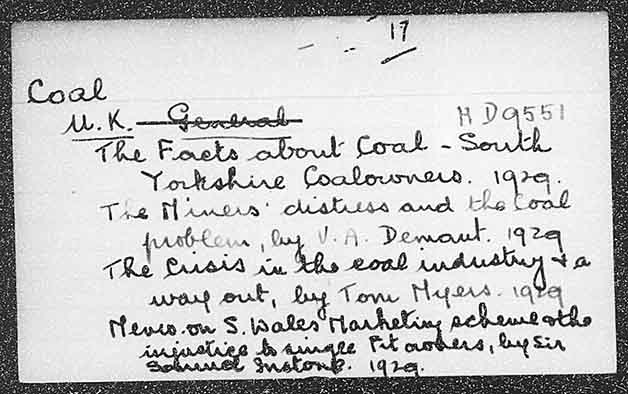 17
Coal
U.K. General HD9551
The Facts about Coal - South
Yorkshire Coalowners. 1929.
The Miners' distress and the Coal
problem, by V. A. Demant. 1929
The Crisis in the coal industry & a
way out, by Tom Myers. 1929
Memo. on S. Wales Marketing scheme & the
injustice to single Pit owners, by Sir
Samuel Instone. 1929.